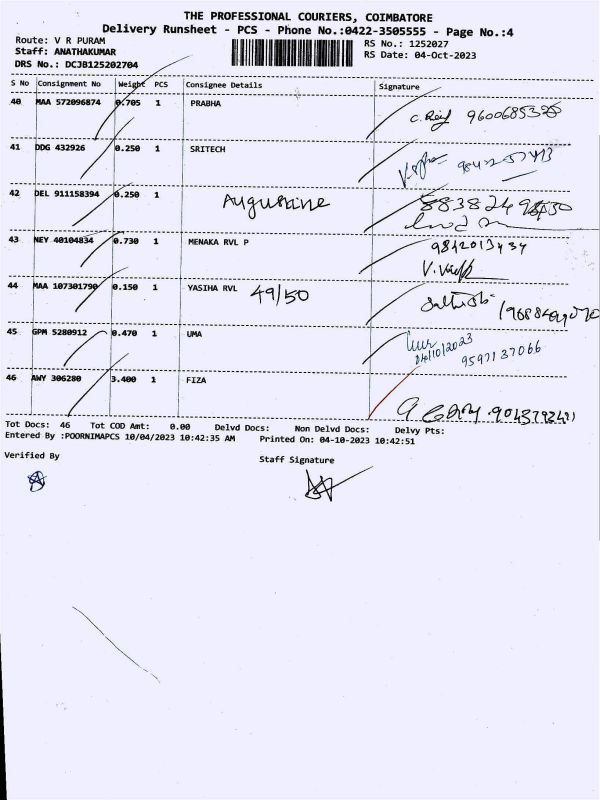 THE PROFESSIONAL COURIERS, COIMBATORE
Delivery Runsheet - PCS - Phone No.:0422-3505555 - Page No.:4
Route: V R PURAM
RS No.: 1252027
Staff: ANATHAKUMAR
RS Date: 04-Oct-2023
DRS No.: DCJB125202704
S No Consignment No Weight PCS Consignee Details Signature
40 MAA 572096874 0.705 1 PRABHA
41 DDG 432926 0.250 1 SRITECH
42 DEL 911158394 0.250 1 Augustine
43 NEY 40104834 0.730 1 MENAKA RVL P 9842013434
44 MAA 107301790 0.150 1 YASIHA RVL 49/50
45 GPM 5280912 0.470 1 UMA
04/10/2023
9597137066
46 AWY 306280 3.400 1 FIZA
Tot Docs: 46 Tot COD Amt: 0.00 Delvd Docs: Non Delvd Docs: Delvy Pts:
Entered By :POORNIMAPCS 10/04/2023 10:42:35 AM Printed On: 04-10-2023 10:42:51
Verified By
Staff Signature